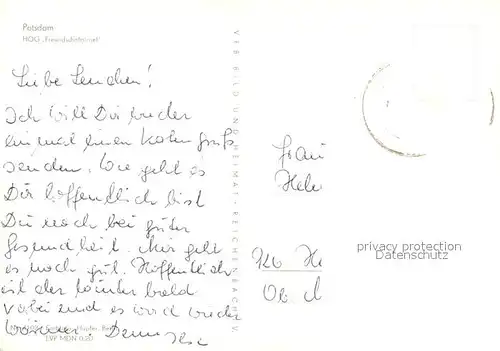 Potsdam
HOG „Freundschaftsinsel"
Liebe Lenchen!
Ich will Dir wieder
einmal einen Karten gruß
senden. Wie geht es
Dir hoffentlich bist
Du noch bei guter
Gesundheit. Mir geht
es noch gut. Hoffentlich
ist der Winter bald
vorbei und es wird wieder
wärmer.
EVP MDN 0,20
VEB BILD UND HEIMAT · REICHENBACH V.
Frau
Hele
privacy protection
Datenschutz